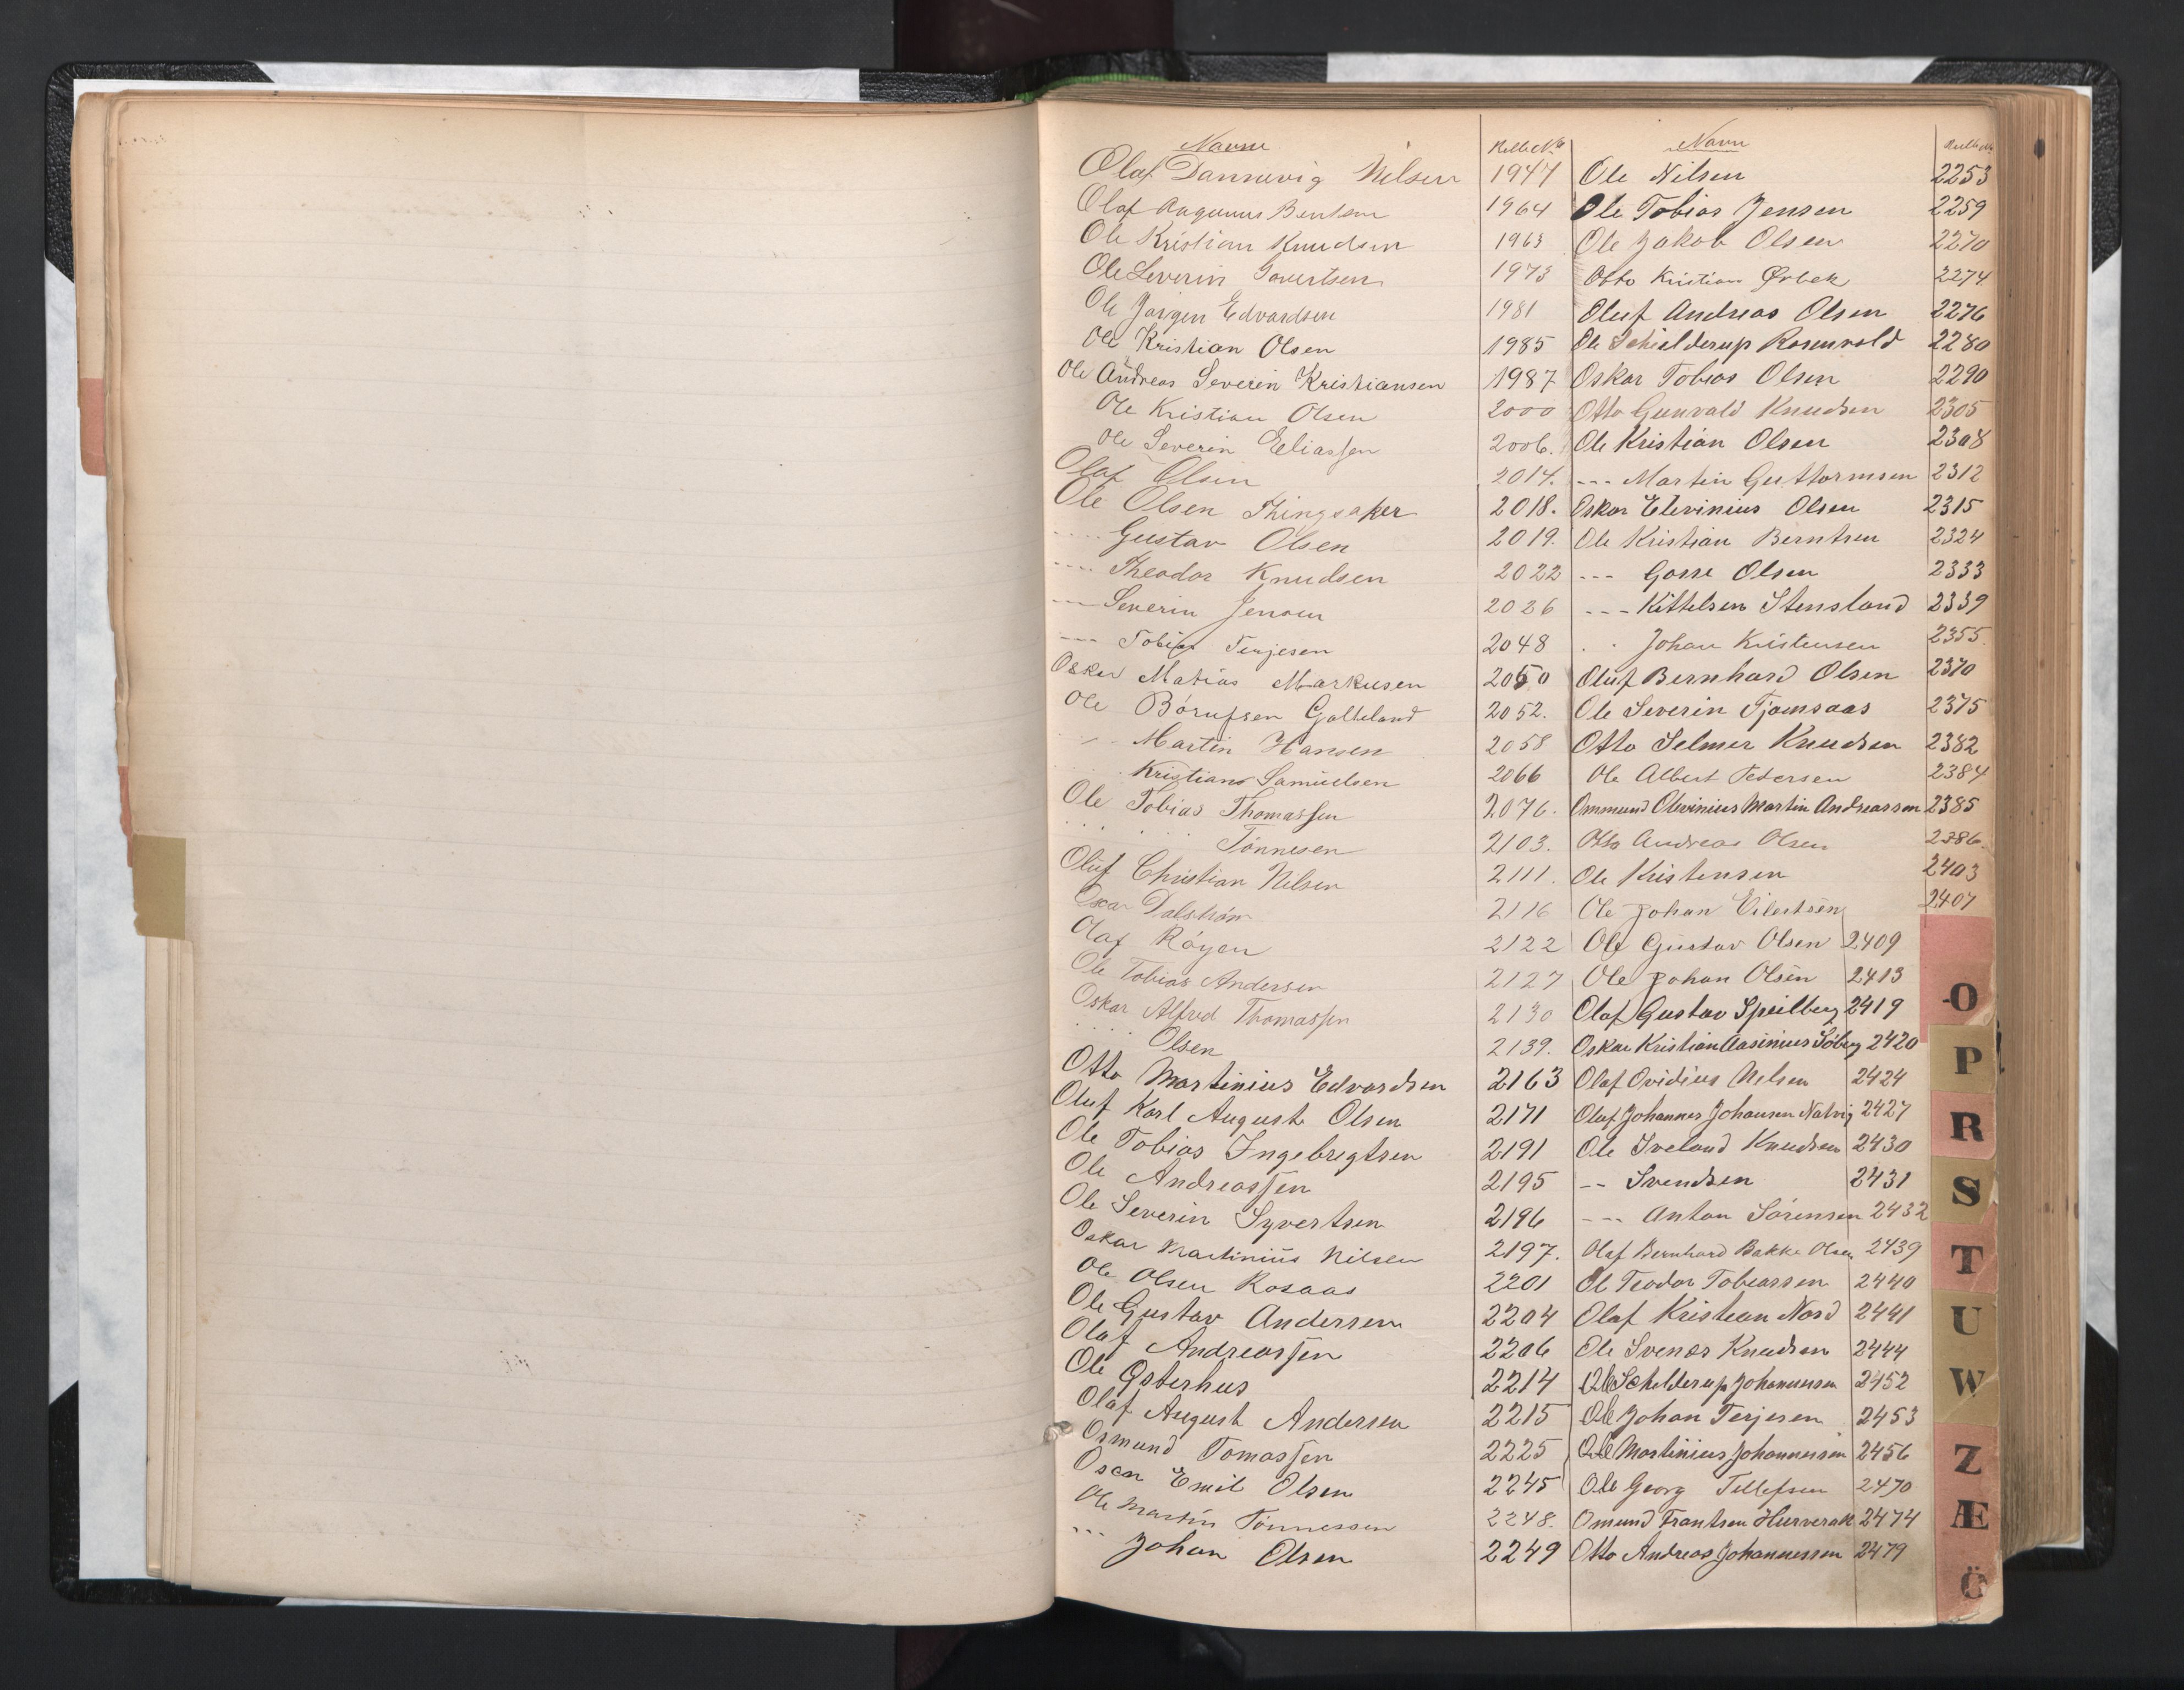 Navne Rulle No
Olaf Dannevig Nilsen 1947
Olaf Bentsen 1964
Ole Kristian Knudsen 1963
Ole Severin 1973
Ole Jørgen Edvardsen 1981
Ole Kristian Olsen 1985
Ole Andreas Severin Kristiansen 1987
Ole Kristian Olsen 2000
Ole Severin Eeliassen 2006.
Olaf Olsen 2014.
Ole Olsen Ringsaker 2018.
.... Gustav Olsen 2019.
.... Theodor Knudsen 2022
--- Severin Jensen 2026
--- Tobias Terjesen 2048
Oskar Matias Markusen 2050
Ole Børufsen Galteland 2052.
Martin Hansen 2058
Kristian Samuelsen 2066
Ole Tobias Thomassen 2076.
. . . . Tønnesen 2103.
Oluf Christian Nilsen 2111.
Oscar Dalstrøm 2116
Olaf Røyen 2122
Ole Tobias Andersen 2127
Oskar Alfred Thomassen 2130
.... Olsen 2139.
Otto Martinius Edvardsen 2163
Oluf Karl August Olsen 2171
Ole Tobias Ingebregtsen 2191
Ole Andreassen 2195
Ole Severin Syvertsen 2196
Oskar Martinius Nilsen 2197.
Ole Olsen Rosaas 2201
Ole Gustav Andersen 2204
Olaf Andreassen 2206
Ole Østerhus 2214
Olaf August Andersen 2215
Osmund Tomassen 2225
Oscar Emil Olsen 2245
Ole Martin Tønnessen 2248.
... Johan Olsen 2249
Navn Rulle No
Ole Nilsen 2253
Ole Tobias Jensen 2259
Ole Jakob Olsen 2270
Otto Kristian Ørbek 2274
Oluf Andreas Olsen 2276
Ole Schielderup Rosenvold 2280
Oskar Tobias Olsen 2290
Otto Gunvald Knudsen 2305
Ole Kristian Olsen 2308
--- Martin Guttormsen 2312
Oskar Elevinius Olsen 2315
Ole Kristian Berntsen 2324
--- Gosse Olsen 2333
--- Kittelsen Stensland 2339
. . Johan Kristensen 2355.
Oluf Bernhard Olsen 2370
Ole Severin Tjomsaas 2375
Otto Selmer Knudsen 2382
Ole Albert Pedersen 2384
Ommund Olevinius Martin Andreassen 2385
Otto Andreas Olsen 2386.
Ole Kristensen 2403
Ole Johan Eilertsen 2407
Ole Gustav Olsen 2409
Ole Johan Olsen 2413
Olaf Gustav Speilberg 2419
Oskar Kristian Aasinius Søberg 2420
Olaf Ovidius Nilsen 2424
Olaf Johannes Johansen Natvig 2427
Ole Iveland Knudsen 2430
-- Svendsen 2431
--- Anton Sørensen 2432
Olaf Bernhard Bakke Olsen 2439
Ole Teodor Tobiassen 2440
Olaf Kristian Nord 2441
Ole Svenes Knudsen 2444
Ole Schelderup Johannessen 2452
Ole Johan Terjesen 2453
Ole Martinius Johannessen 2456
Ole Georg Tellefsen 2470
Omund Frantsen Hurverak 2474
Otto Andreas Johannessen 2479
O
P
R
S
T
U
W
Z
Æ
Ö